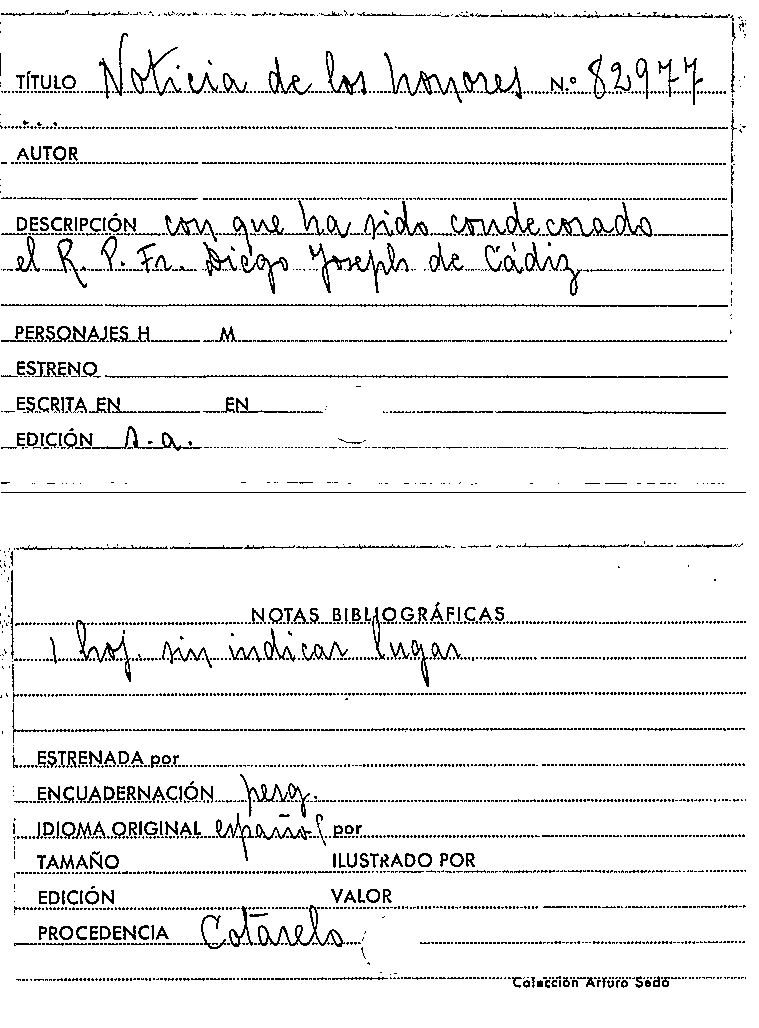 TÍTULO Noticia de los honores N.º 82977
...
AUTOR
DESCRIPCIÓN con que ha sido condecorado
el R. P. Fr. Diego Joseph de Cádiz
PERSONAJES H M
ESTRENO
ESCRITA EN EN
EDICIÓN s.a.
NOTAS BIBLIOGRÁFICAS
1 hoj. sin indicar lugar
ESTRENADA por
ENCUADERNACIÓN perg.
IDIOMA ORIGINAL español por
TAMAÑO ILUSTRADO POR
EDICIÓN VALOR
PROCEDENCIA Cotarelo
Colección Arturo Sedó